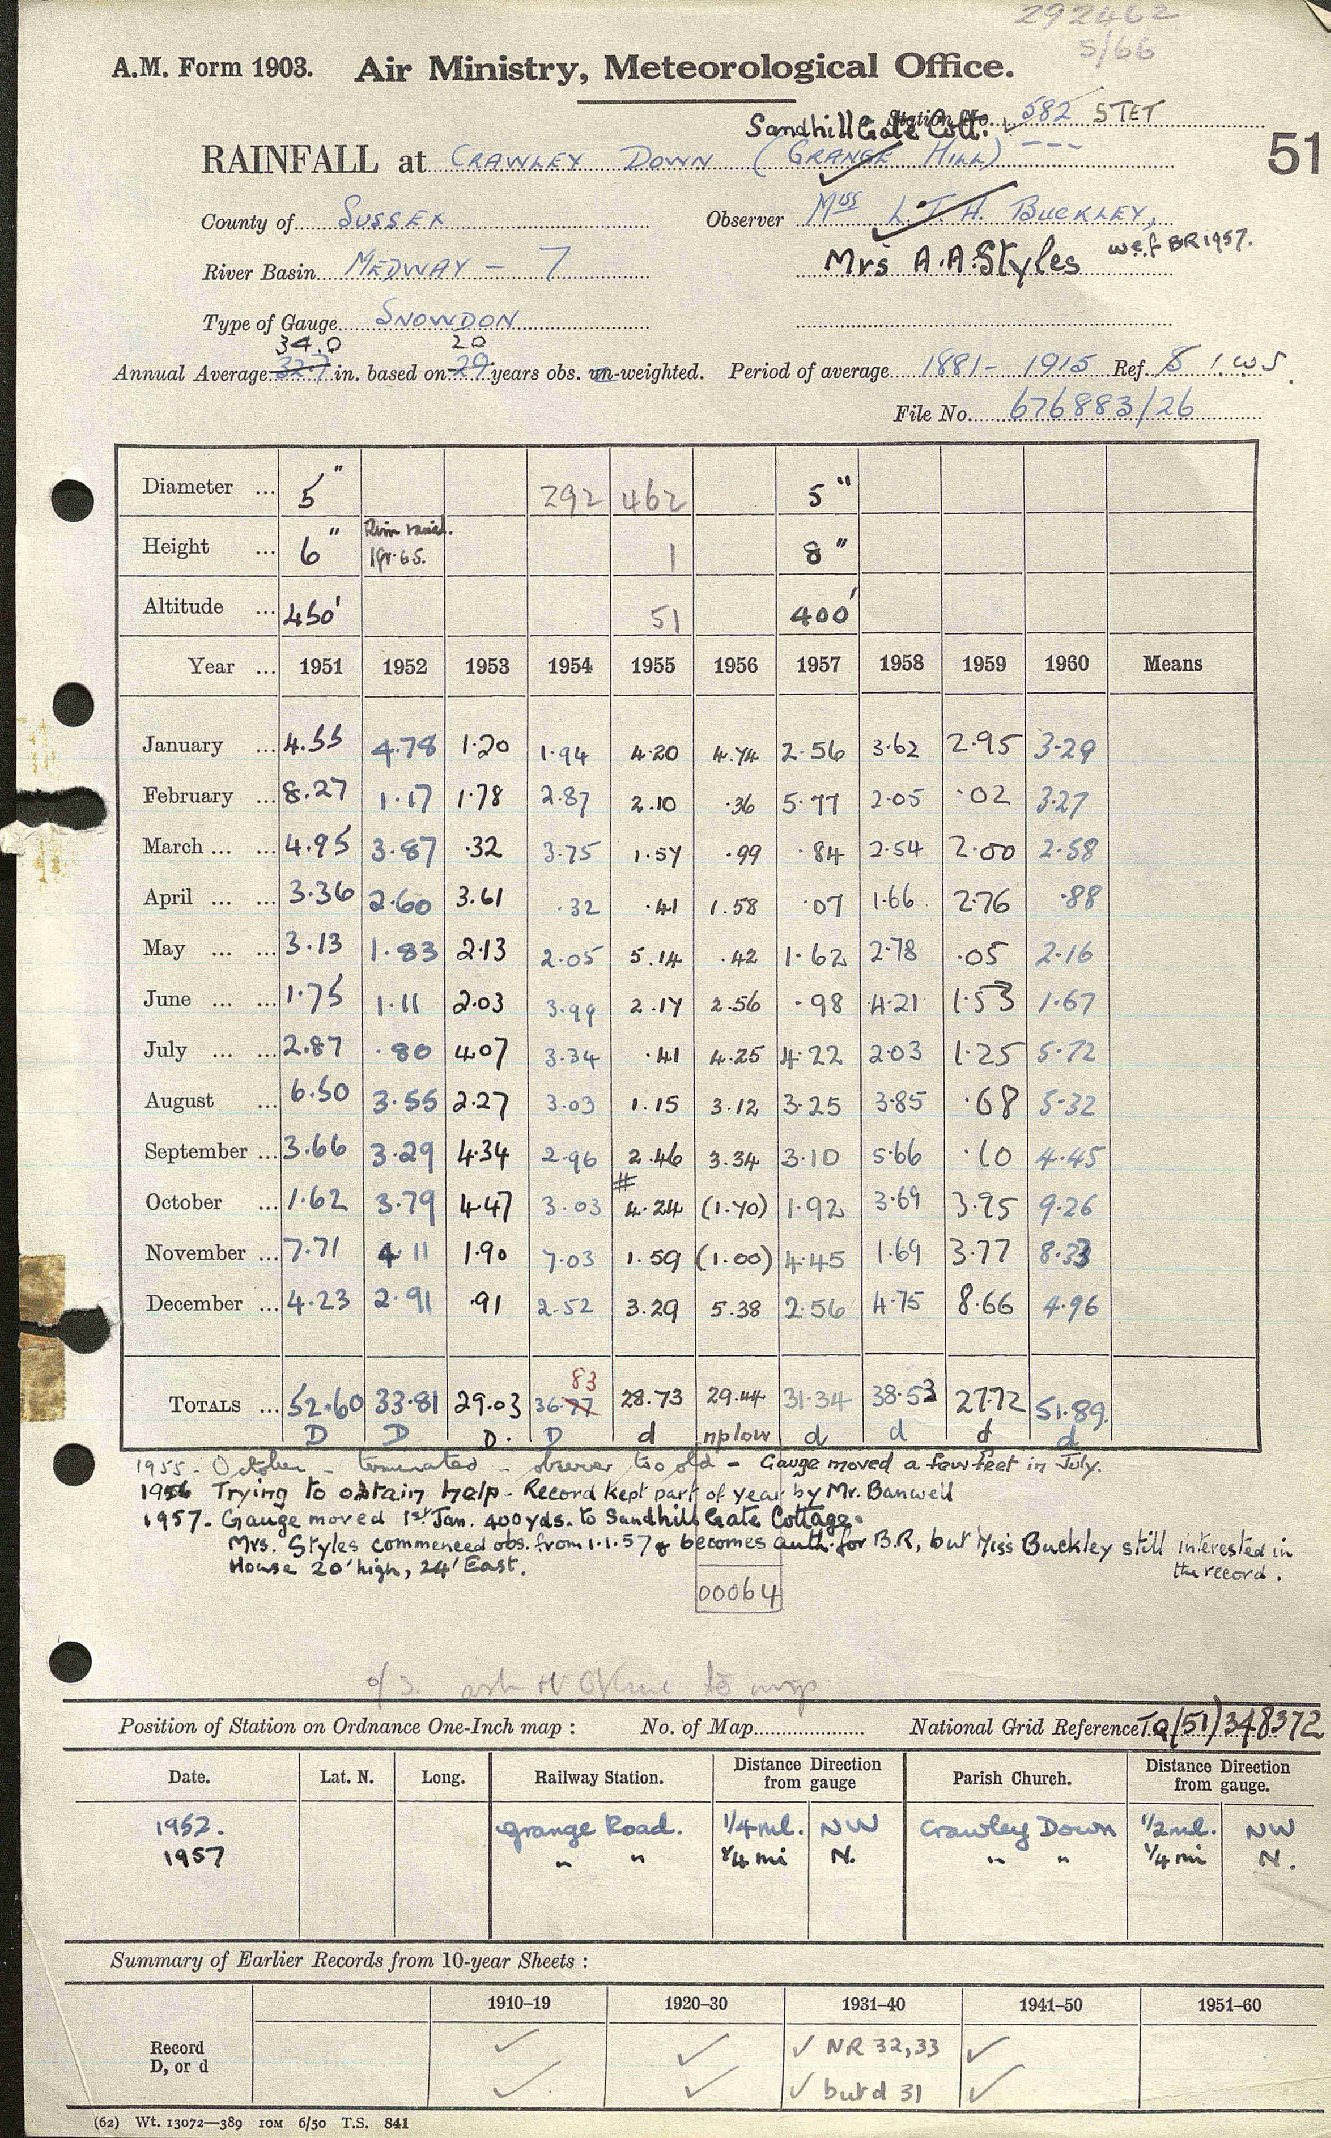 292462
5/66
A.M. Form 1903. Air Ministry, Meteorological Office.
Station No. 582 STET
Sandhill Gate Cott.
51
RAINFALL at CRAWLEY DOWN (GRANGE HILL) ---
County of SUSSEX Observer Miss L.I.H. BUCKLEY,
River Basin MEDWAY - 7 Mrs A.A. Styles w.e.f BR 1957.
Type of Gauge SNOWDON
34.0 20
Annual Average 32.7 in. based on 29 years obs. un-weighted. Period of average 1881 - 1915 Ref. 8 I.W.S.
File No. 676883/26
Diameter ... 5" 292 462 5"
Height ... 6" Rim raised. 1gr.65. 1 8"
Altitude ... 450' 51 400'
Year ... 1951 1952 1953 1954 1955 1956 1957 1958 1959 1960 Means
January ... 4.55 4.78 1.20 1.94 4.20 4.74 2.56 3.62 2.95 3.29
February ... 8.27 1.17 1.78 2.87 2.10 .36 5.77 2.05 .02 3.27
March ... ... 4.95 3.87 .32 3.75 1.57 .99 .84 2.54 2.00 2.58
April ... ... 3.36 2.60 3.61 .32 .41 1.58 .07 1.66 2.76 .88
May ... ... 3.13 1.83 2.13 2.05 5.14 .42 1.62 2.78 .05 2.16
June ... ... 1.75 1.11 2.03 3.99 2.17 2.56 .98 4.21 1.53 1.67
July ... ... 2.87 .80 4.07 3.34 .41 4.25 4.22 2.03 1.25 5.72
August ... 6.50 3.55 2.27 3.03 1.15 3.12 3.25 3.85 .68 5.32
September ... 3.66 3.29 4.34 2.96 2.46 3.34 3.10 5.66 .10 4.45
#
October ... 1.62 3.79 4.47 3.03 4.24 (1.70) 1.92 3.69 3.95 9.26
November ... 7.71 4.11 1.90 7.03 1.59 (1.00) 4.45 1.69 3.77 8.33
December ... 4.23 2.91 .91 2.52 3.29 5.38 2.56 4.75 8.66 4.96
83
TOTALS ... 52.60 33.81 29.03 36.77 28.73 29.44 31.34 38.53 27.72 51.89
D D D. D d nplow d d d d
1955 - October - terminated - observer too old - Gauge moved a few feet in July.
1956 Trying to obtain help - Record kept part of year by Mr. Banwell
1957 - Gauge moved 1st Jan. 400yds. to Sandhill Gate Cottage.
Mrs. Styles commenced obs. from 1.1.57 & becomes auth. for B.R, but Miss Buckley still interested in
House 20' high, 24' East. the record.
00064
Position of Station on Ordnance One-Inch map : No. of Map National Grid Reference TQ(51)348372
Date. Lat. N. Long. Railway Station. Distance Direction from gauge Parish Church. Distance Direction from gauge.
1952. Grange Road. 1/4 ml. NW Crawley Down 1/2 ml. NW
1957 " " 1/4 mi N. " " 1/4 mi N.
Summary of Earlier Records from 10-year Sheets :
1910–19 1920–30 1931–40 1941–50 1951–60
Record ✓ ✓ ✓ NR 32,33 ✓
D, or d ✓ ✓ ✓ but d 31 ✓
(62) Wt. 13072—389 10M 6/50 T.S. 841